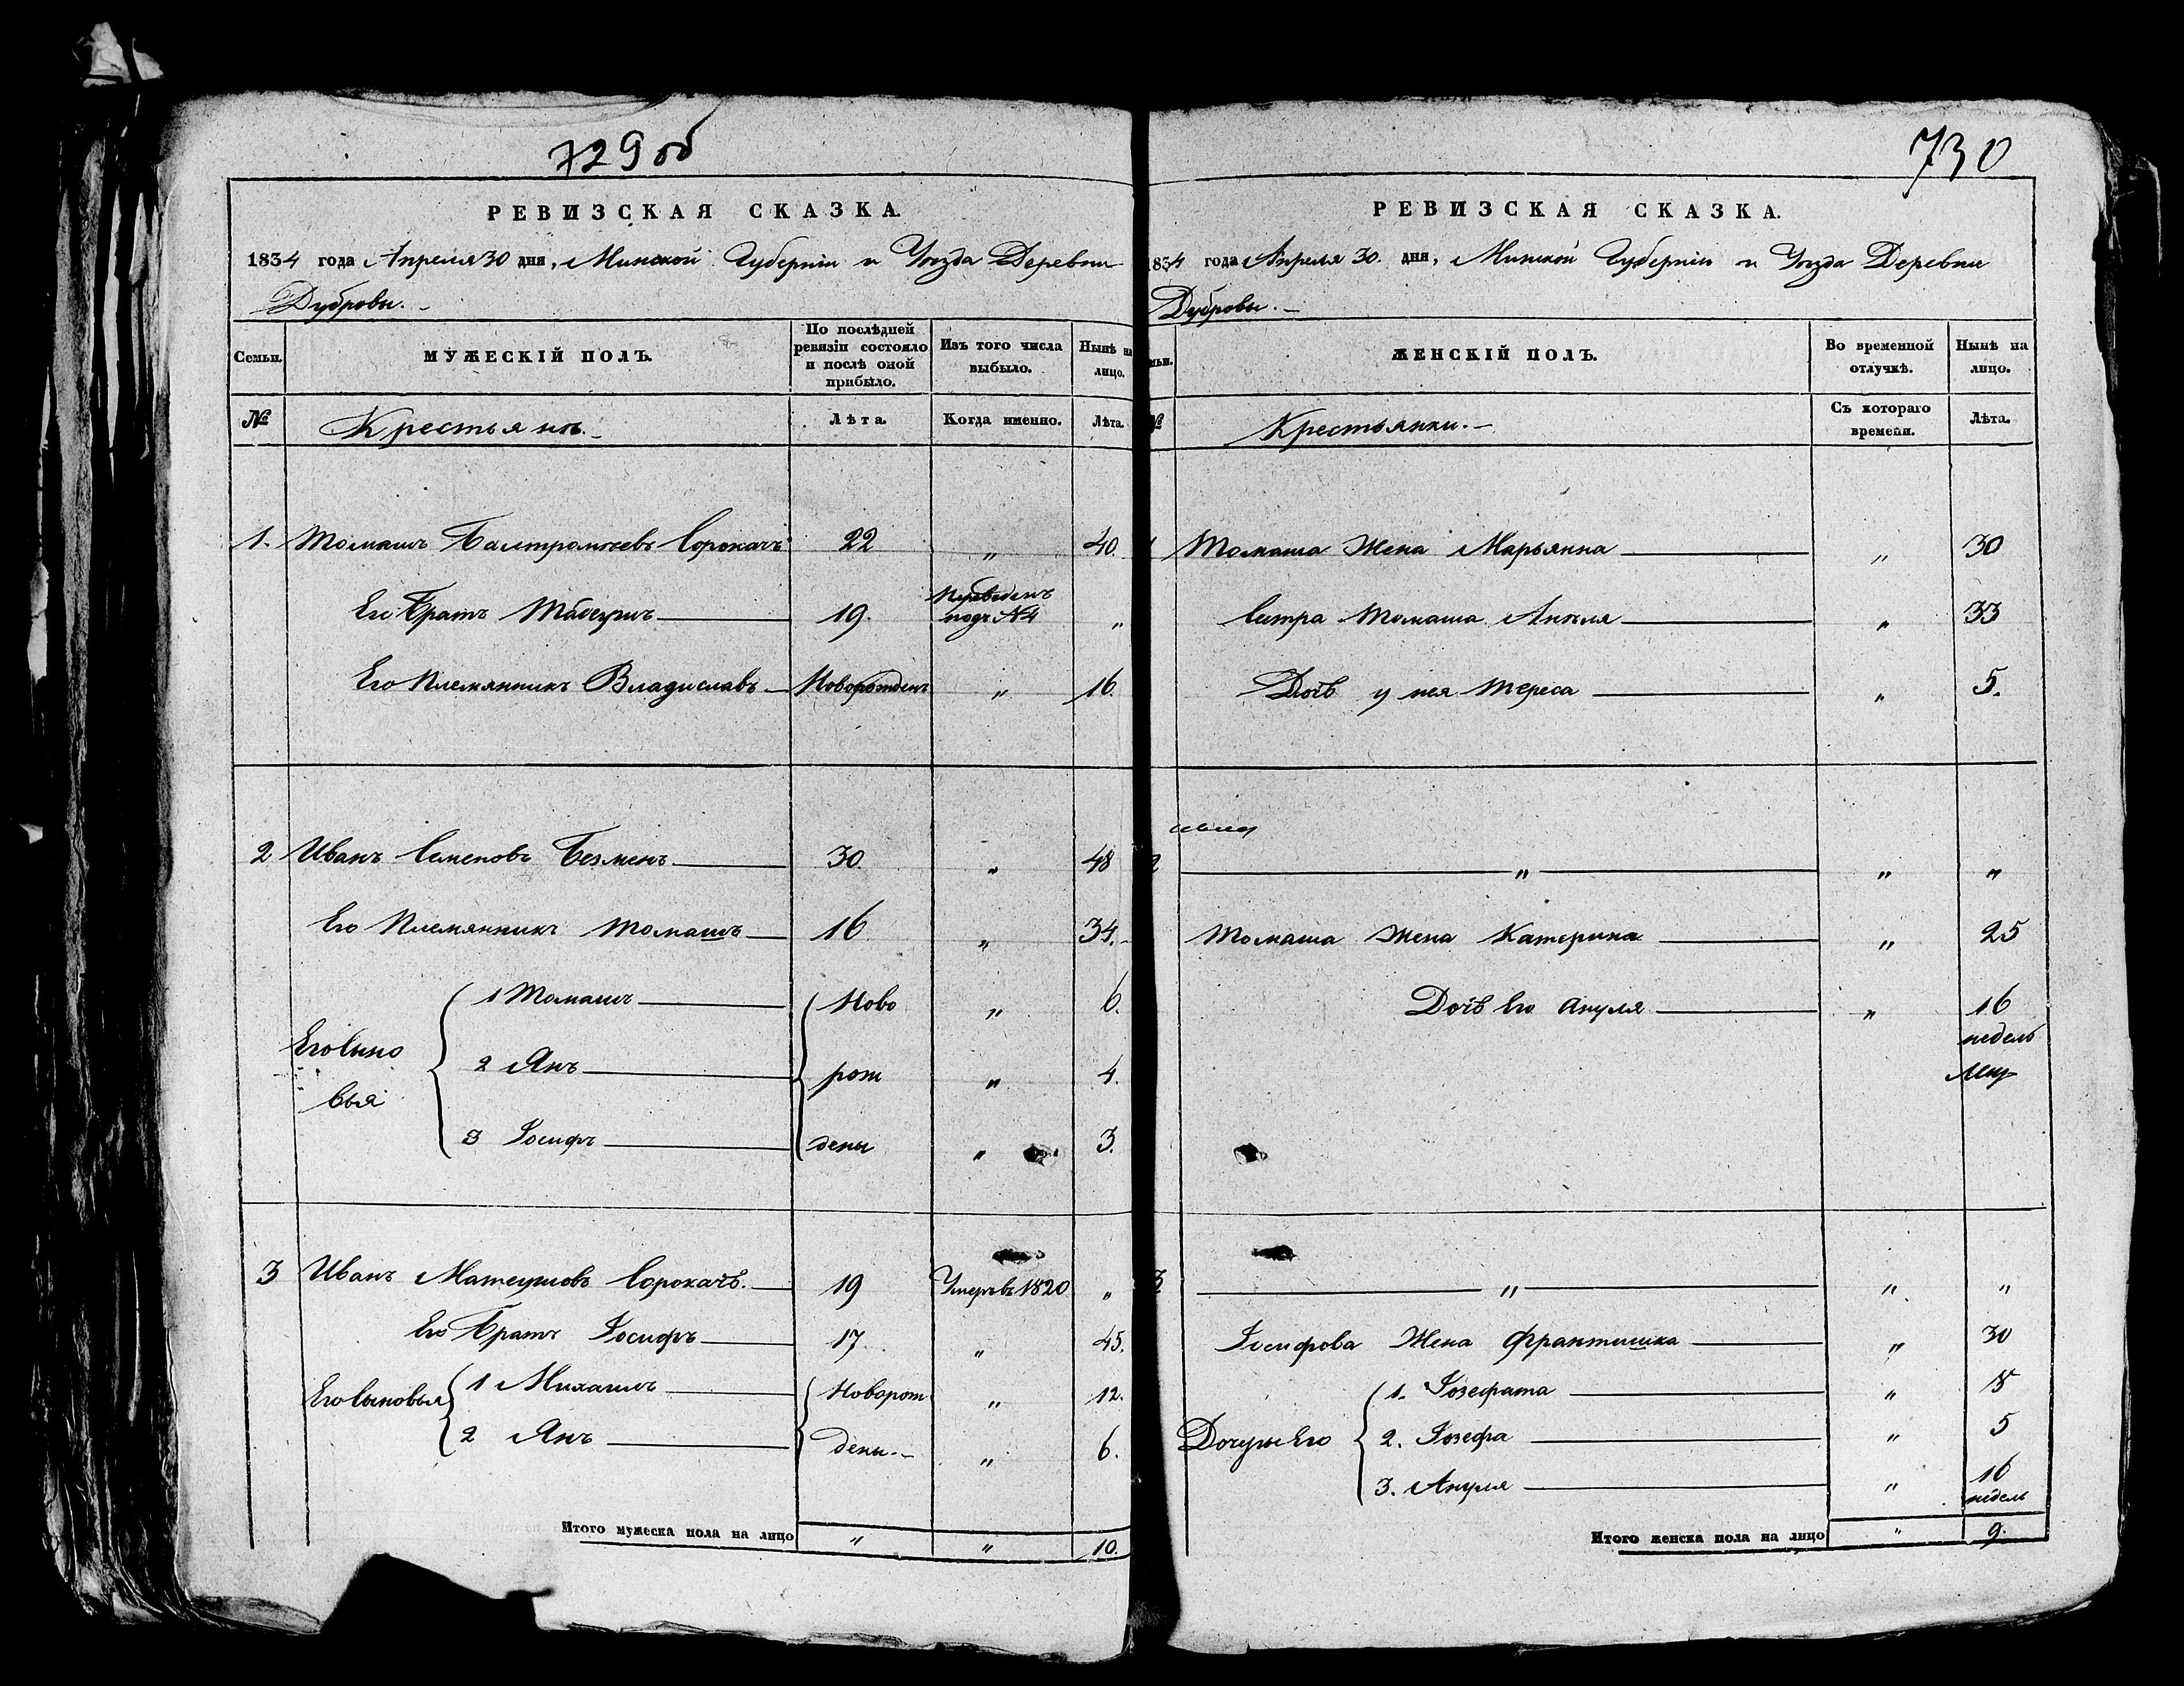 729об
РЕВИЗСКАЯ СКАЗКА.
1834 года Апреля 30 дня, Минской Губерніи и Уѣзда Деревни
Дубровы.
Семьи.
МУЖЕСКІЙ ПОЛЪ.
По послѣдней
ревизіи состояло
и послѣ оной
прибыло.
Изъ того числа
выбыло.
Нынѣ на
лицо.
№
Крестьянѣ.
Лѣта.
Когда именно.
Лѣта.
1. Томашъ Балтромѣевъ Сорокачъ 22 " 40.
Его Братъ Матеушъ 19. Переведенъ
подъ №4 "
Его Племянникъ Владиславъ Новорожденъ " 16.
2 Иванъ Семеновъ Безменъ 30. " 48
Его Племянникъ Томашъ 16 " 34.
1 Томашъ Ново " 6.
Его Сыно
2 Янъ рож " 4.
вья
3 Іосифъ дены " 3.
3 Иванъ Матеушовъ Сорокачъ. 19 Умеръ въ 1820 "
Его Братъ Іосифъ 17 " 45.
Его Сыновья 1 Михаилъ Новорож " 12.
2 Янъ дены. " 6.
Итого мужеска пола на лицо " " 10.
730
РЕВИЗСКАЯ СКАЗКА.
1834 года Апреля 30. дня, Минской Губерніи и Уѣзда Деревни
Дубровы.
мьи.
ЖЕНСКІЙ ПОЛЪ.
Во временной
отлучкѣ.
Нынѣ на
лицо.
№
Крестьянки.
Съ котораго
времени.
Лѣта.
1 Томаша Жена Марьянна " 30
Сестра Томаша Анеля " 33
Дочь у нея Тереса " 5.
2 " " "
Томаша Жена Катерина " 25
Дочь Его Ануля " 16
недель
3 " " "
Іосифова Жена Франтишка " 30
1. Іозефата " 8
Дочеры Его 2. Іозефа " 5
3. Ануля " 16
недель
Итого женска пола на лицо " 9.